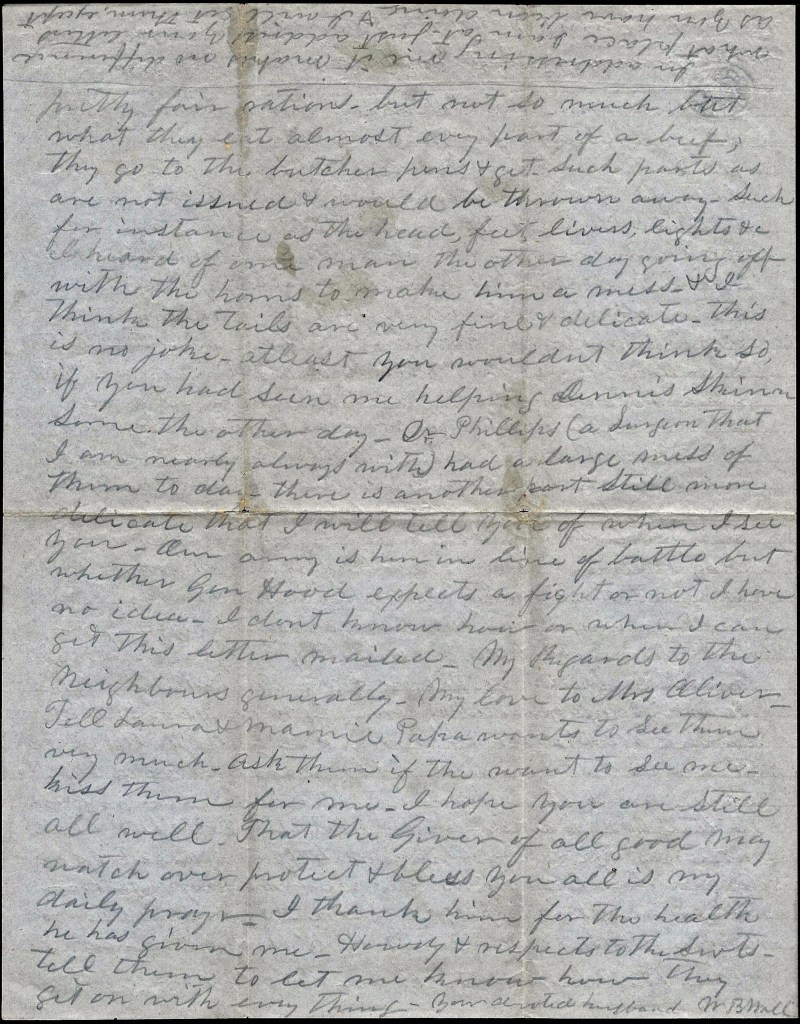 In addressing me it makes no difference
what place I am at just address your letters
as you have been doing & I will get them, except
pretty fair rations - but not so much but
what they eat almost evry part of a beef,
they go to the butcher pens & get such parts as
are not issued & would be thrown away - such
for instance as the head, feet, livers, lights &c
I heard of one man the other day going off
with the horns to make him a mess - & I
think the Tails are very fine & delicate - this
is no joke - atleast you wouldnt think so,
if you had seen me helping Dennis Skinn
some the other day - Dr Phillips (a Surgeon that
I am nearly always with) had a large mess of
them to day - there is another part still more
delicate that I will tell you of when I see
you - Our army is here in line of battle but
whether Gen Hood expects a fight or not I have
no idea - I dont know how or when I can
get this letter mailed - My Regards to the
Neighbours generally - My love to Mrs Oliver -
Tell Laura & Mamie Papa wants to see them
very much - ask them if the want to see me -
kiss them for me - I hope you are still
all well. That the Giver of all good may
watch over protect & bless you all is my
daily prayr - I thank him for the health
he has given me - Howdy & respects to the
tell them to let me know how they
get on with evry thing - Your devoted husband W B Wall